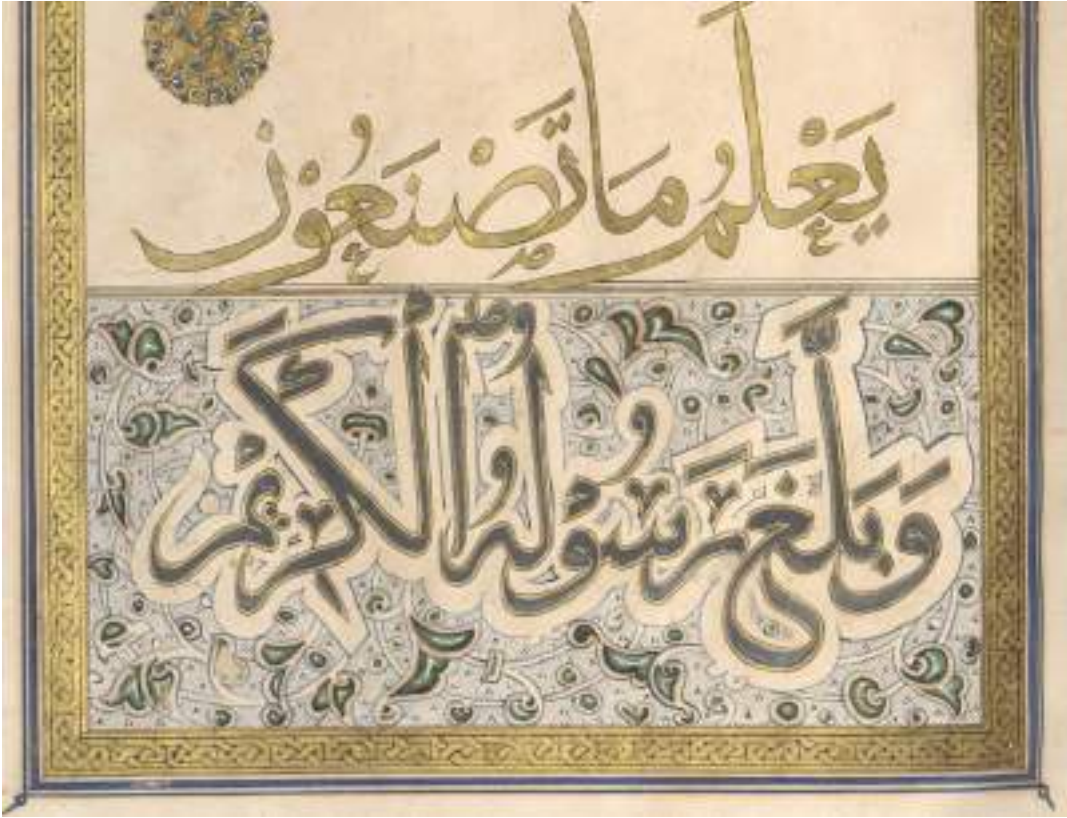 يَعْلَمُ مَا تَصْنَعُونَ
وَبَلَّغَ رَسُولُهُ الْكَرِيمُ